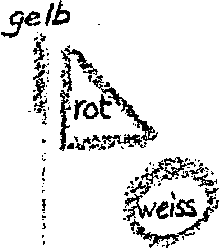 gelb
rot
weiss